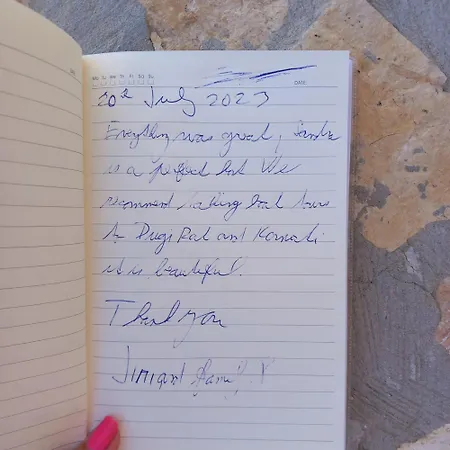 DATE
20th July 2023
Everything was great, Sandra
is a perfect host We
recommend taking boat tours
to Dugi Rat and Kornati
it is beautiful.
Thank you
and